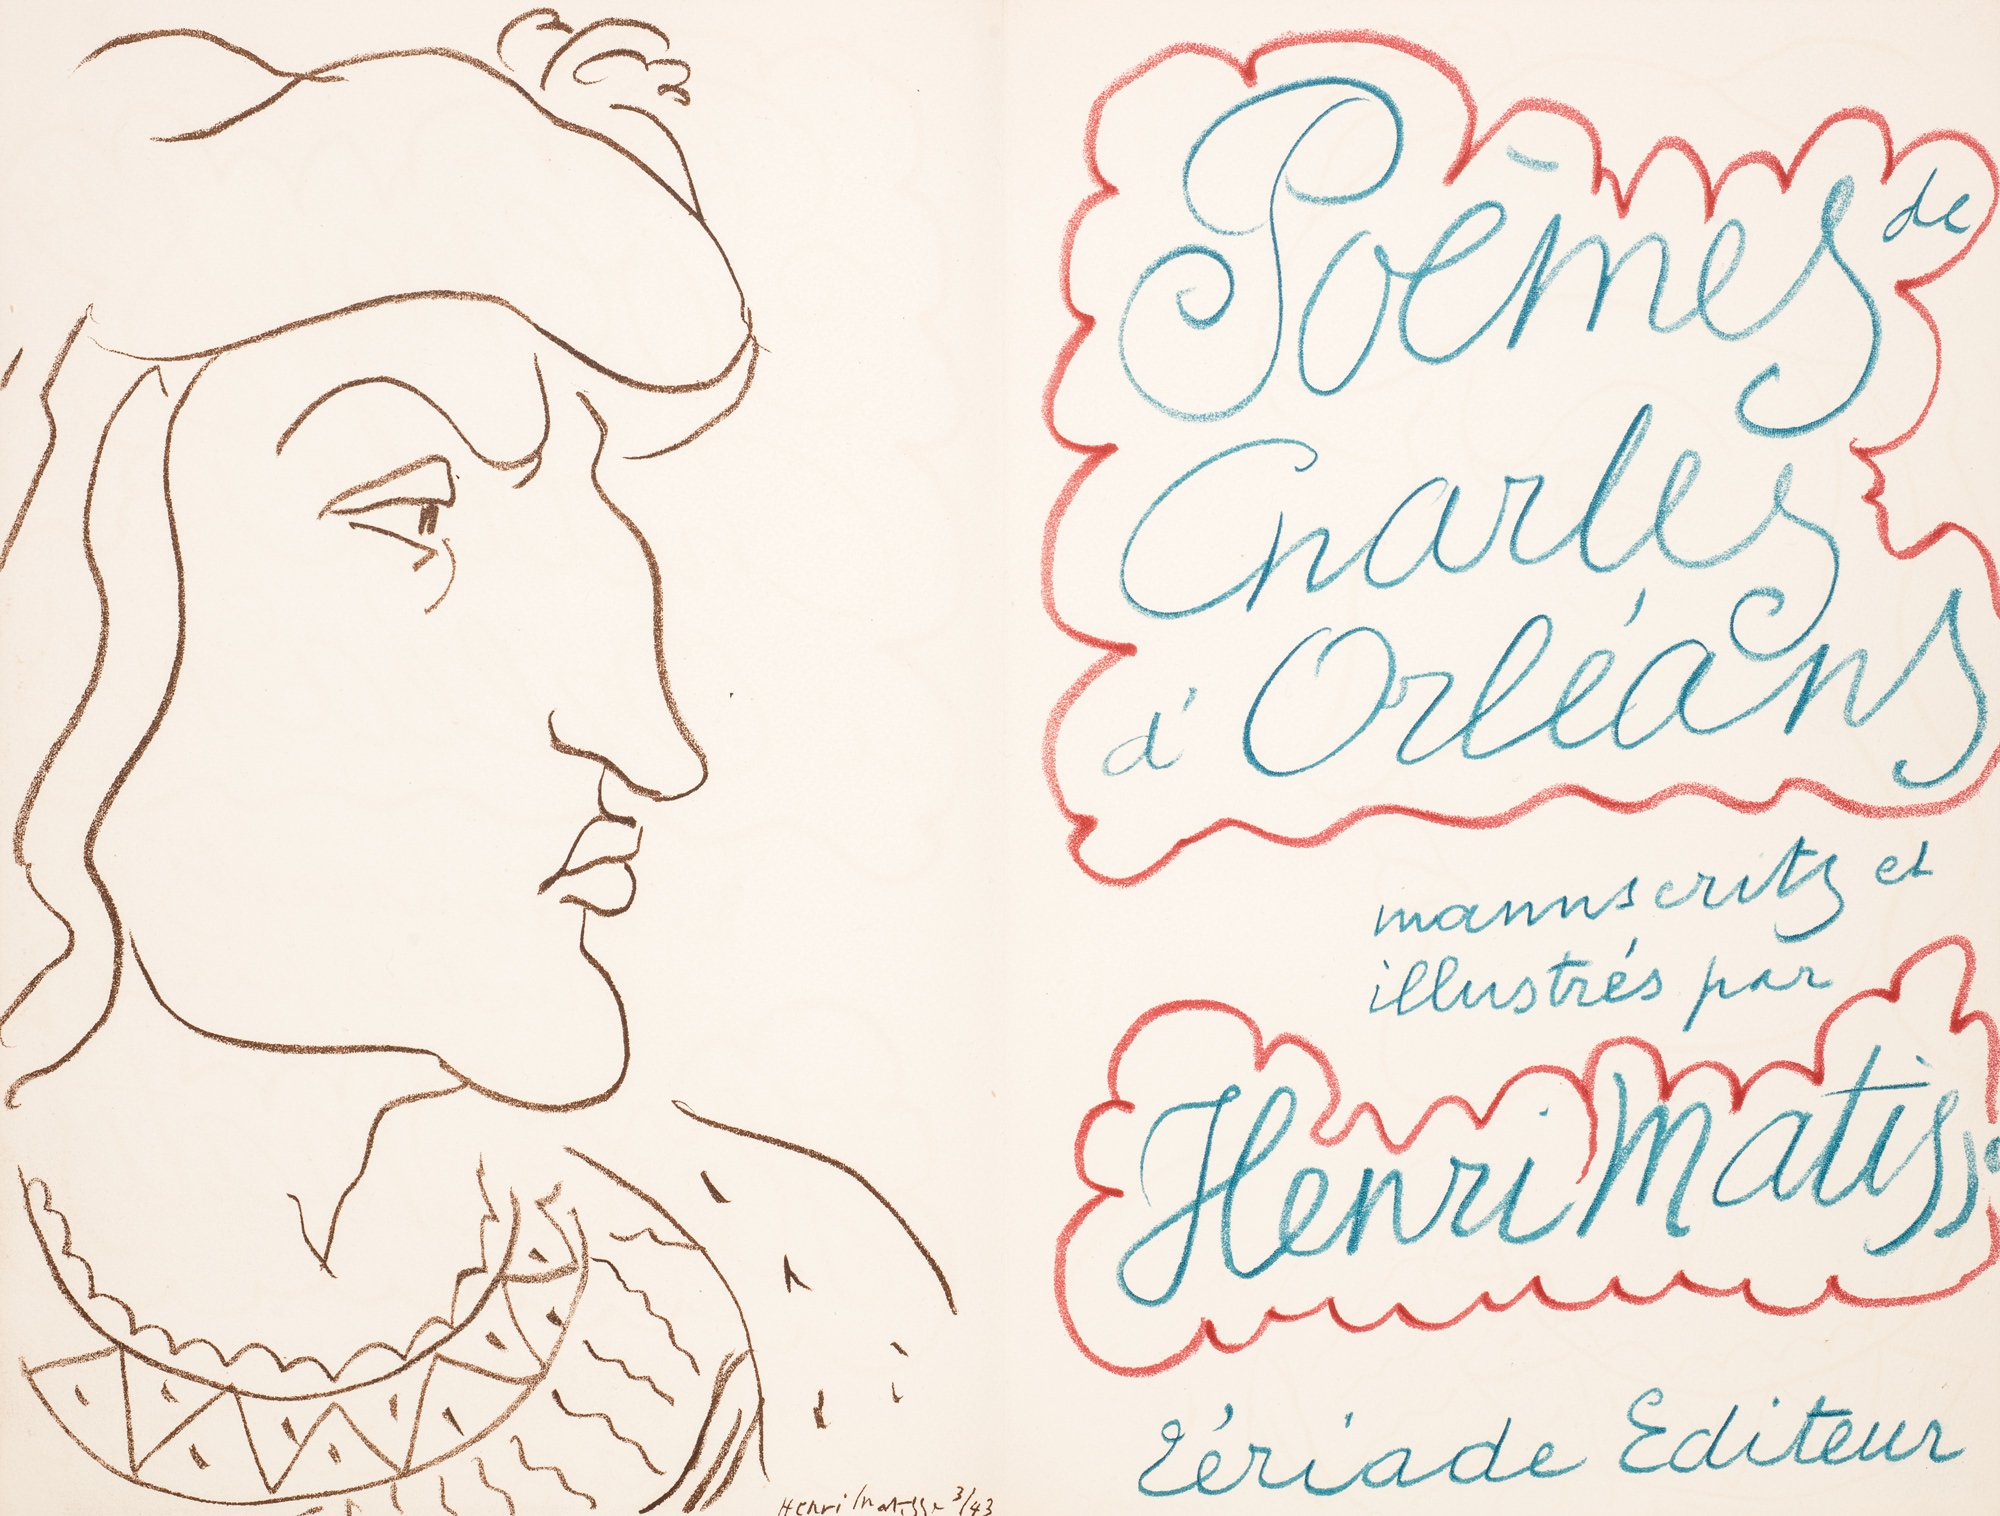 Henri Matisse 3/43
Poēmes de
Charles
d'Orléans
manuscrits et
illustrés par
Henri Matisse
Tériade Editeur